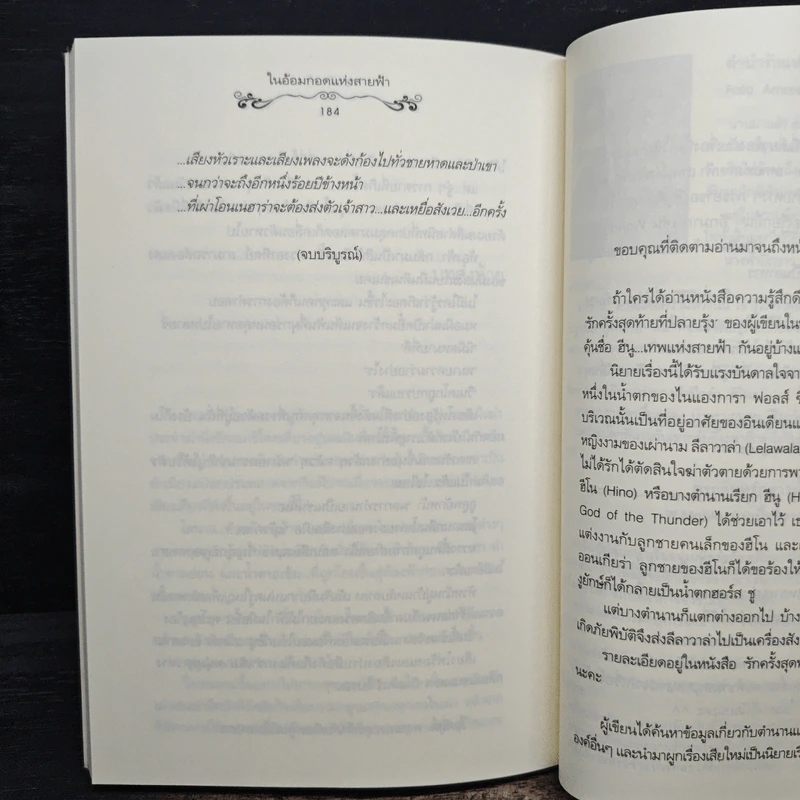 ในอ้อมกอดแห่งสายฟ้า
184
...เสียงหัวเราะและเสียงเพลงจะดังก้องไปทั่วชายหาดและป่าเขา
...จนกว่าจะถึงอีกหนึ่งร้อยปีข้างหน้า
...ที่เผ่าโอนเนฮาร่าจะต้องส่งตัวเจ้าสาว...และเหยื่อสังเวย...อีกครั้ง
(จบบริบูรณ์)
ขอบคุณที่ติดตามอ่านมาจนถึงหน้
ถ้าใครได้อ่านหนังสือความรู้สึกดี
'รักครั้งสุดท้ายที่ปลายรุ้ง' ของผู้เขียนใน
คุ้นชื่อ ฮีนู...เทพแห่งสายฟ้า กันอยู่บ้าง
นิยายเรื่องนี้ได้รับแรงบันดาลใจจา
หนึ่งในน้ำตกของไนแองการา ฟอลส์
บริเวณนั้นเป็นที่อยู่อาศัยของอินเดียน
หญิงงามของเผ่านาม ลีลาวาล่า (Lelawala
ไม่ได้รักได้ตัดสินใจฆ่าตัวตายด้วยการพา
ฮีโน (Hino) หรือบางตำนานเรียก ฮีนู (H
God of the Thunder) ได้ช่วยเอาไว้ เธ
แต่งงานกับลูกชายคนเล็กของฮีโน และ
ออนเกียร่า ลูกชายของฮีโนก็ได้ขอร้องให้
งูยักษ์ก็ได้กลายเป็นน้ำตกฮอร์ส ชู
แต่บางตำนานก็แตกต่างออกไป บ้าง
เกิดภัยพิบัติจึงส่งลีลาวาล่าไปเป็นเครื่องสัง
รายละเอียดอยู่ในหนังสือ 'รักครั้งสุดท
นะคะ
ผู้เขียนได้ค้นหาข้อมูลเกี่ยวกับตำนาน
องค์อื่นๆ และนำมาผูกเรื่องเสียใหม่เป็นนิยายเรื